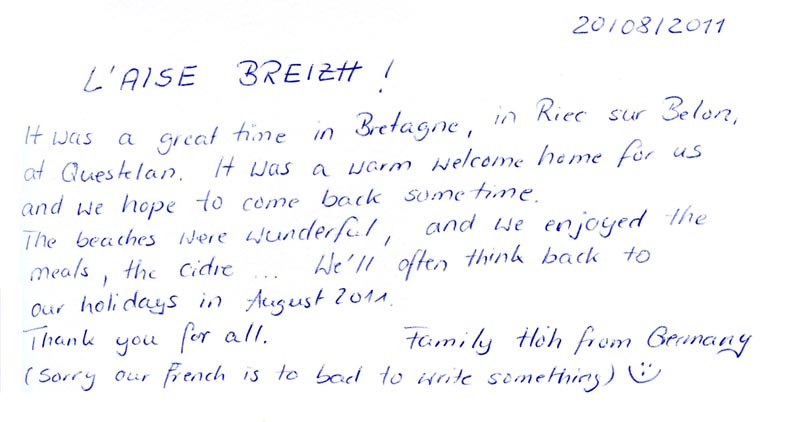 20/08/2011
L'AISE BREIZH !
It was a great time in Bretagne, in Riec sur Belon,
at Questelan. It was a warm welcome home for us
and we hope to come back sometime.
The beaches were wunderful, and we enjoyed the
meals, the cidre ... We'll often think back to
our holidays in August 2011.
Thank you for all. Family Höh from Germany
(Sorry our french is to bad to write something) :)